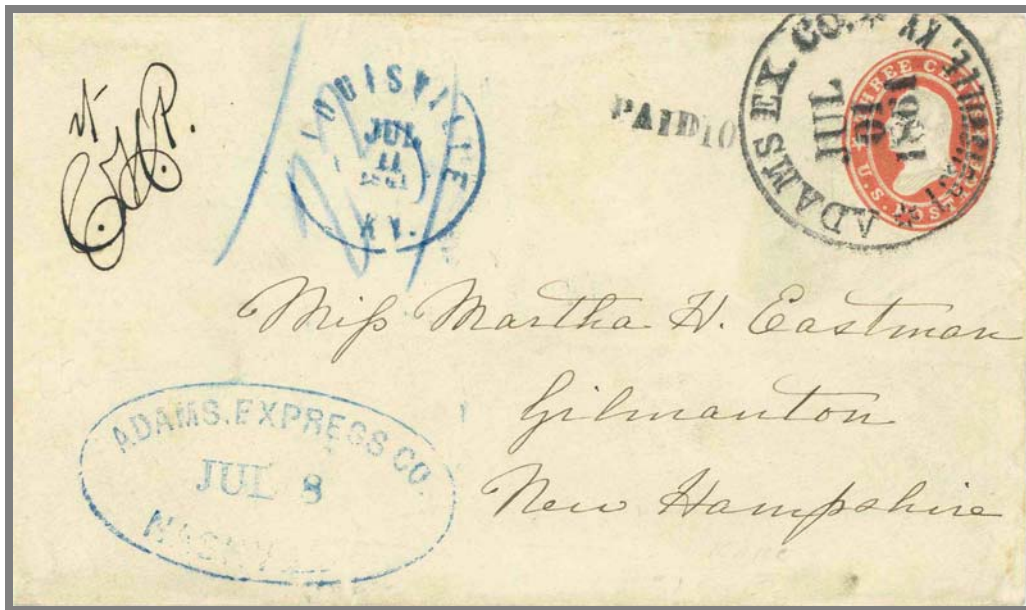 LOUISVILLE
JUL
11
1861
KY.
PAID 10
ADAMS EX. CO. * LOUISVILLE, KY *
JUL
10
1861
THREE CENTS
U.S. POSTAGE
Miss Martha H. Eastman
Gilmanton
New Hampshire
ADAMS. EXPRESS CO.
JUL 8
NASHVILLE